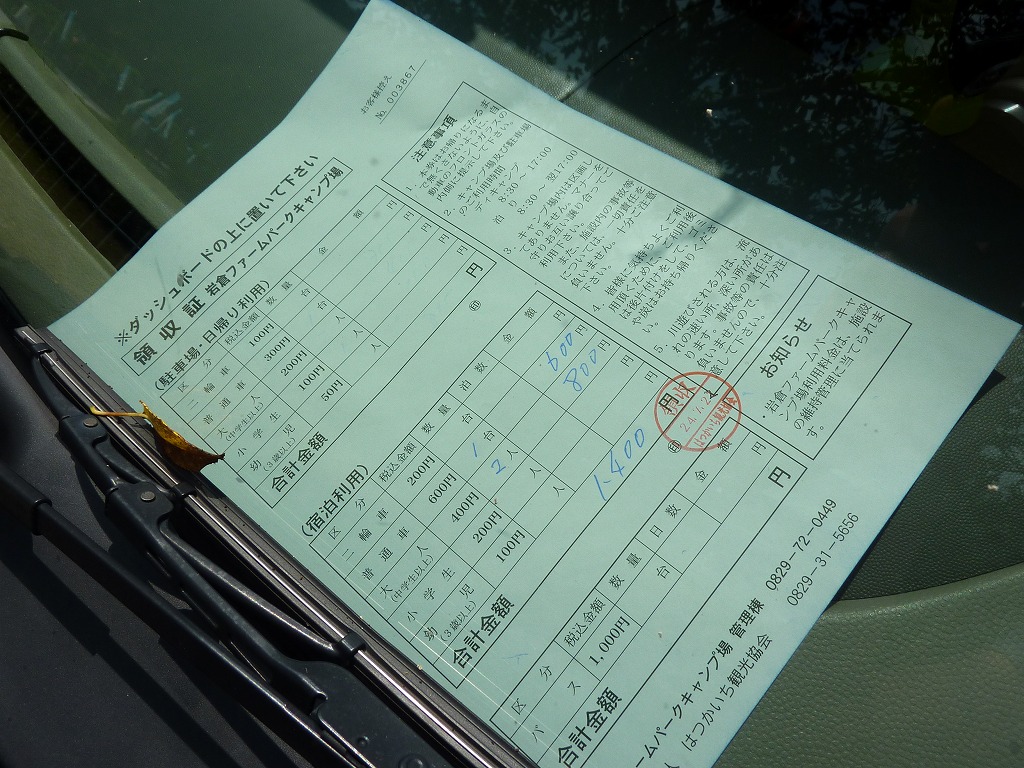 お客様控え
No. 003867
※ダッシュボードの上に置いて下さい
領収証 岩倉ファームパークキャンプ場
(駐車場・日帰り利用)
区分 税込金額 数量 金額
二輪車 100円 台 円
普通車 300円 台 円
大人(中学生以上) 200円 人 円
小学生 100円 人 円
幼児(3歳以上) 50円 人 円
合計金額 円
㊞
(宿泊利用)
区分 税込金額 数量 泊数 金額
二輪車 200円 台 円
普通車 600円 1台 600円
大人(中学生以上) 400円 2人 800円
小学生 200円 人 円
幼児(3歳以上) 100円 人 円
合計金額 1,400円
㊞
区分 税込金額 数量 日数 金額
バス 1,000円 台 円
合計金額 円
注意事項
1. 本券はお帰りになるま
で無くさないように、自
動車のフロントガラスの
内側に提示して下さい。
2. キャンプ場及び駐車場
のご利用時間
デイキャンプ
8:30~17:00
泊 8:30~翌17:00
3. キャンプ場内は区画し
てありません。マナーを
守りお互い譲り合ってご
利用下さい。
また、施設内の事故等
については、一切責任を
負いません。十分ご注意
下さい。
4. 皆様に気持ちよくご利
用頂くため、ご利用後
は後片付けをし、ゴミ
や炭はお持ち帰りくださ
い。
5. 川遊びされる方は、流
れの速い所、深い所があ
ります。事故等の責任は
負いませんので、十分注
意して下さい。
領収
はつかいち観光協会
お知らせ
・岩倉ファームパークキャ
ンプ場利用料金は、施設
の維持管理に当てられま
す。
ームパークキャンプ場 管理棟 0829-72-0449
人 はつかいち観光協会 0829-31-5656